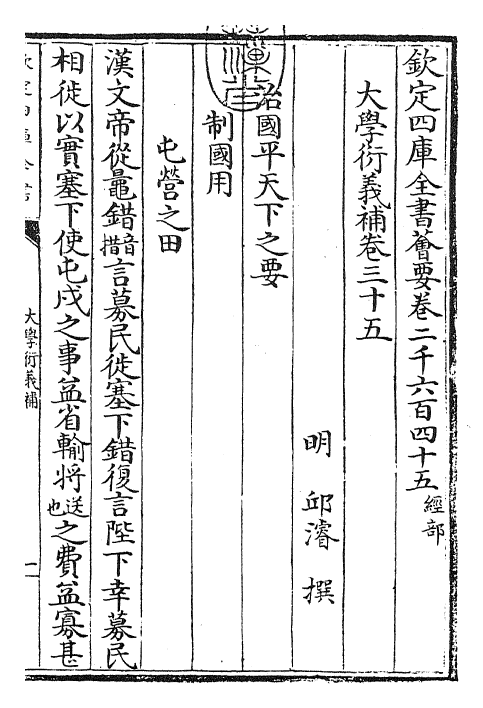 欽定四庫全書薈要卷二千六百四十五經部
大學衍義補卷三十五
明 邱濬 撰
治國平天下之要
制國用
屯營之田
漢文帝從鼂錯音措言募民徙塞下錯復言陛下幸募民
相徙以實塞下使屯戍之事益省輸將送也之費益寡甚
大學衍義補
一